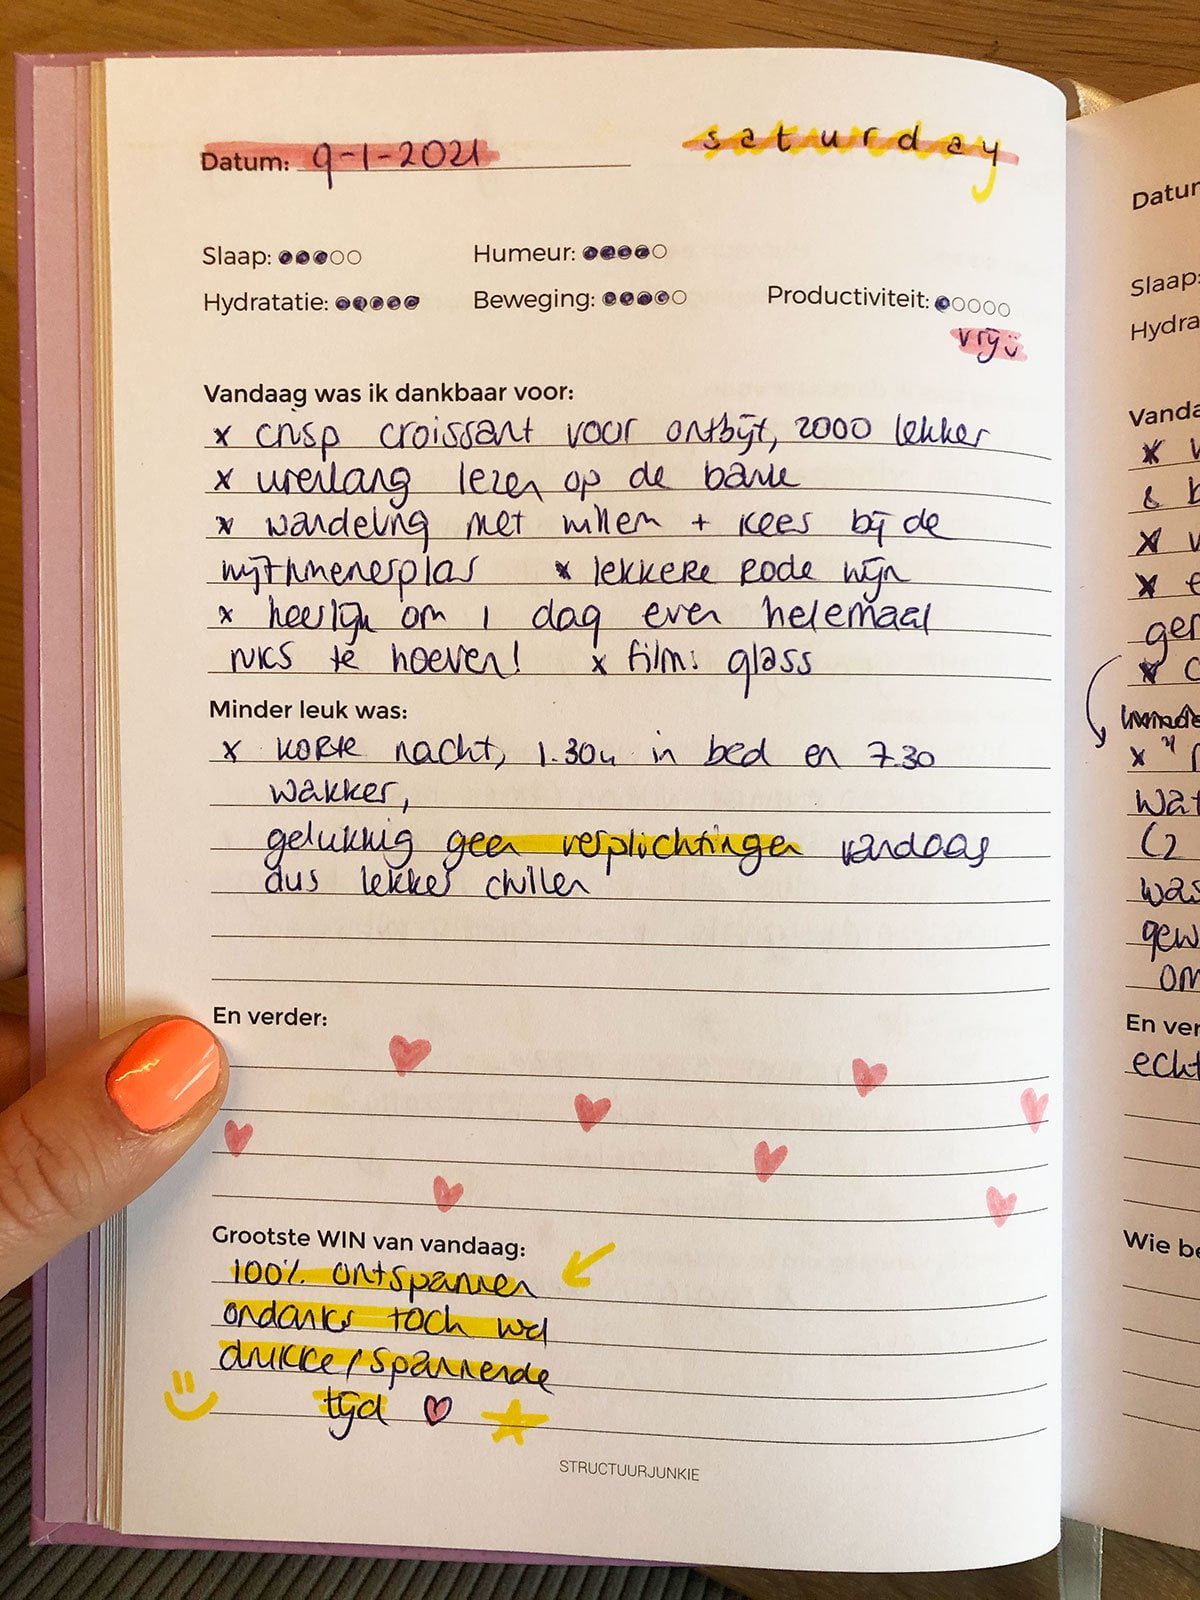 Datum: 9-1-2021
saturday
Slaap:
Humeur:
Hydratatie:
Beweging:
Productiviteit:
vrij
Vandaag was ik dankbaar voor:
x crisp croissant voor ontbijt, zooo lekker
x urenlang lezen op de bank
x wandeling met willem + kees bij de
wijthmenerplas x lekkere rode wijn
x heerlijk om 1 dag even helemaal
niks te hoeven! x film: glass
Minder leuk was:
x korte nacht, 1.30u in bed en 7.30
wakker,
gelukkig geen verplichtingen vandaag
dus lekker chillen
En verder:
Grootste WIN van vandaag:
100% ontspannen
ondanks toch wel
drukke/spannende
tijd
STRUCTUURJUNKIE
Datum
Slaap:
Hydra
Vanda
x
&
x
x
ger
x
x
wat
(2
was
gew
om
En ver
echt
Wie be